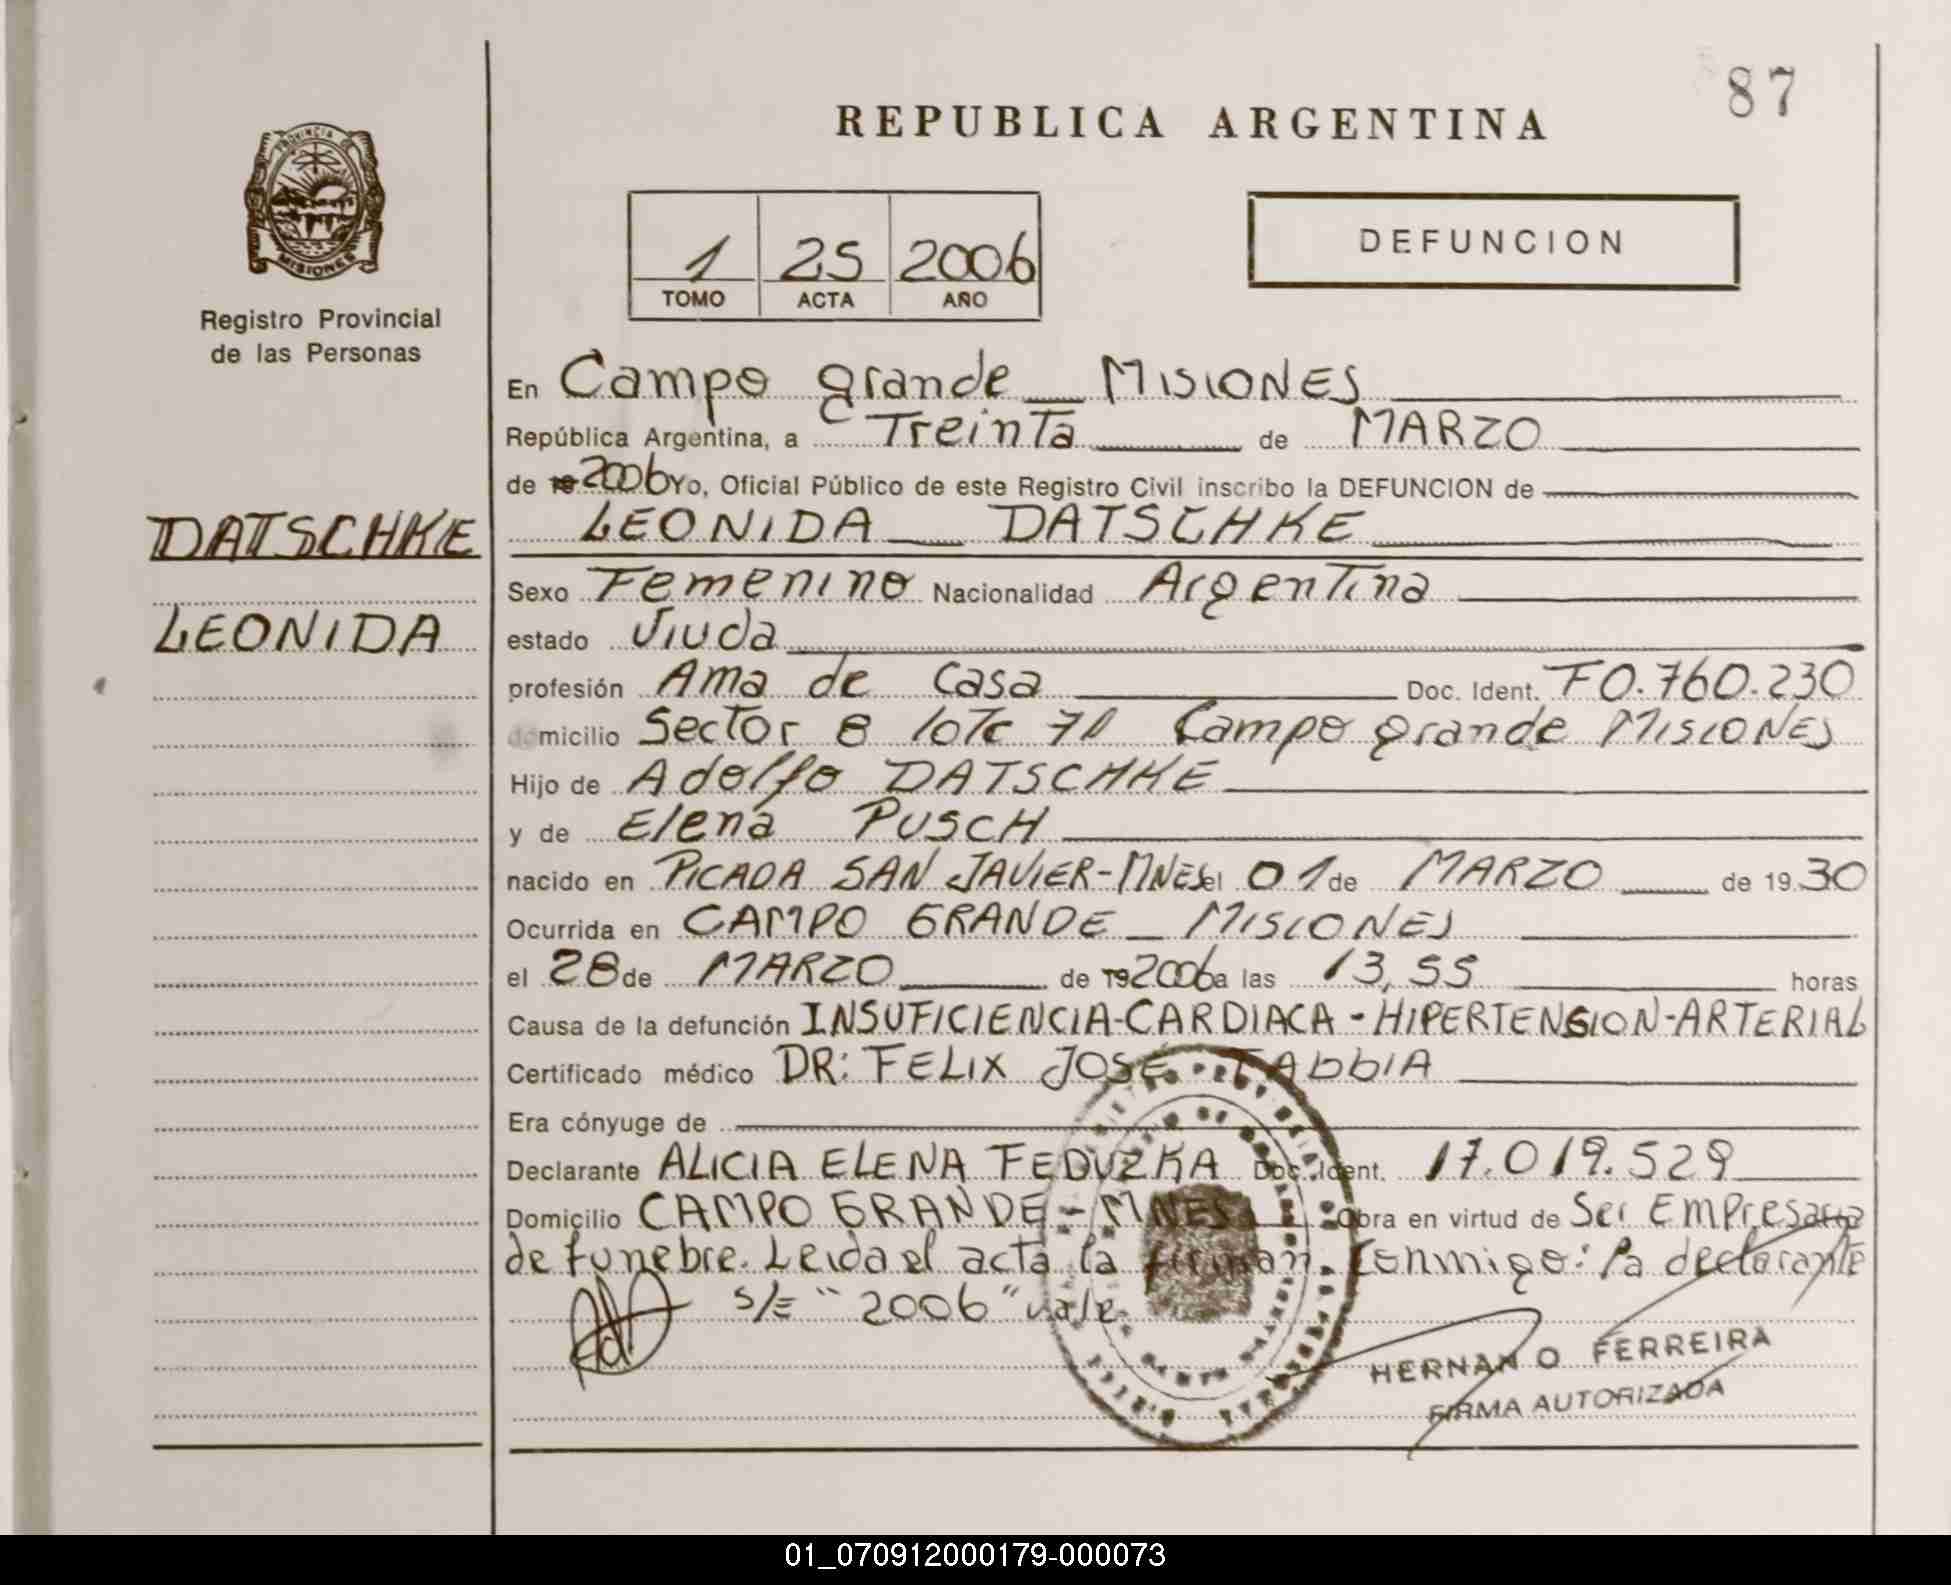 87
REPUBLICA ARGENTINA
PROVINCIA
MISIONES
Registro Provincial
de las Personas
1 25 2006
TOMO ACTA AÑO
DEFUNCION
En Campo grande MISIONES
República Argentina, a Treinta de MARZO
de 19 2006 Yo, Oficial Público de este Registro Civil inscribo la DEFUNCION de
DATSCHKE
LEONIDA DATSCHKE
Sexo Femenino Nacionalidad Argentina
LEONIDA
estado Viuda
profesión Ama de casa Doc. Ident. F0.760.230
domicilio Sector 8 lote 71 Campo grande MISIONES
Hijo de Adolfo DATSCHKE
y de Elena PUSCH
nacido en PICADA SAN JAVIER-MNES el 01 de MARZO de 1930
Ocurrida en CAMPO GRANDE MISIONES
el 28 de MARZO de 19 2006 a las 13,55 horas
Causa de la defunción INSUFICIENCIA-CARDIACA-HIPERTENSION-ARTERIAL
Certificado médico DR: FELIX JOSE TABBIA
Era cónyuge de
Declarante ALICIA ELENA FEDUZKA Doc. Ident. 17.019.529
Domicilio CAMPO GRANDE-MNES Obra en virtud de Ser Empresaria
de funebre. Leida el acta la firman Conmigo: la declarante
S/E "2006" vale
HERNAN O FERREIRA
FIRMA AUTORIZADA
01_070912000179-000073